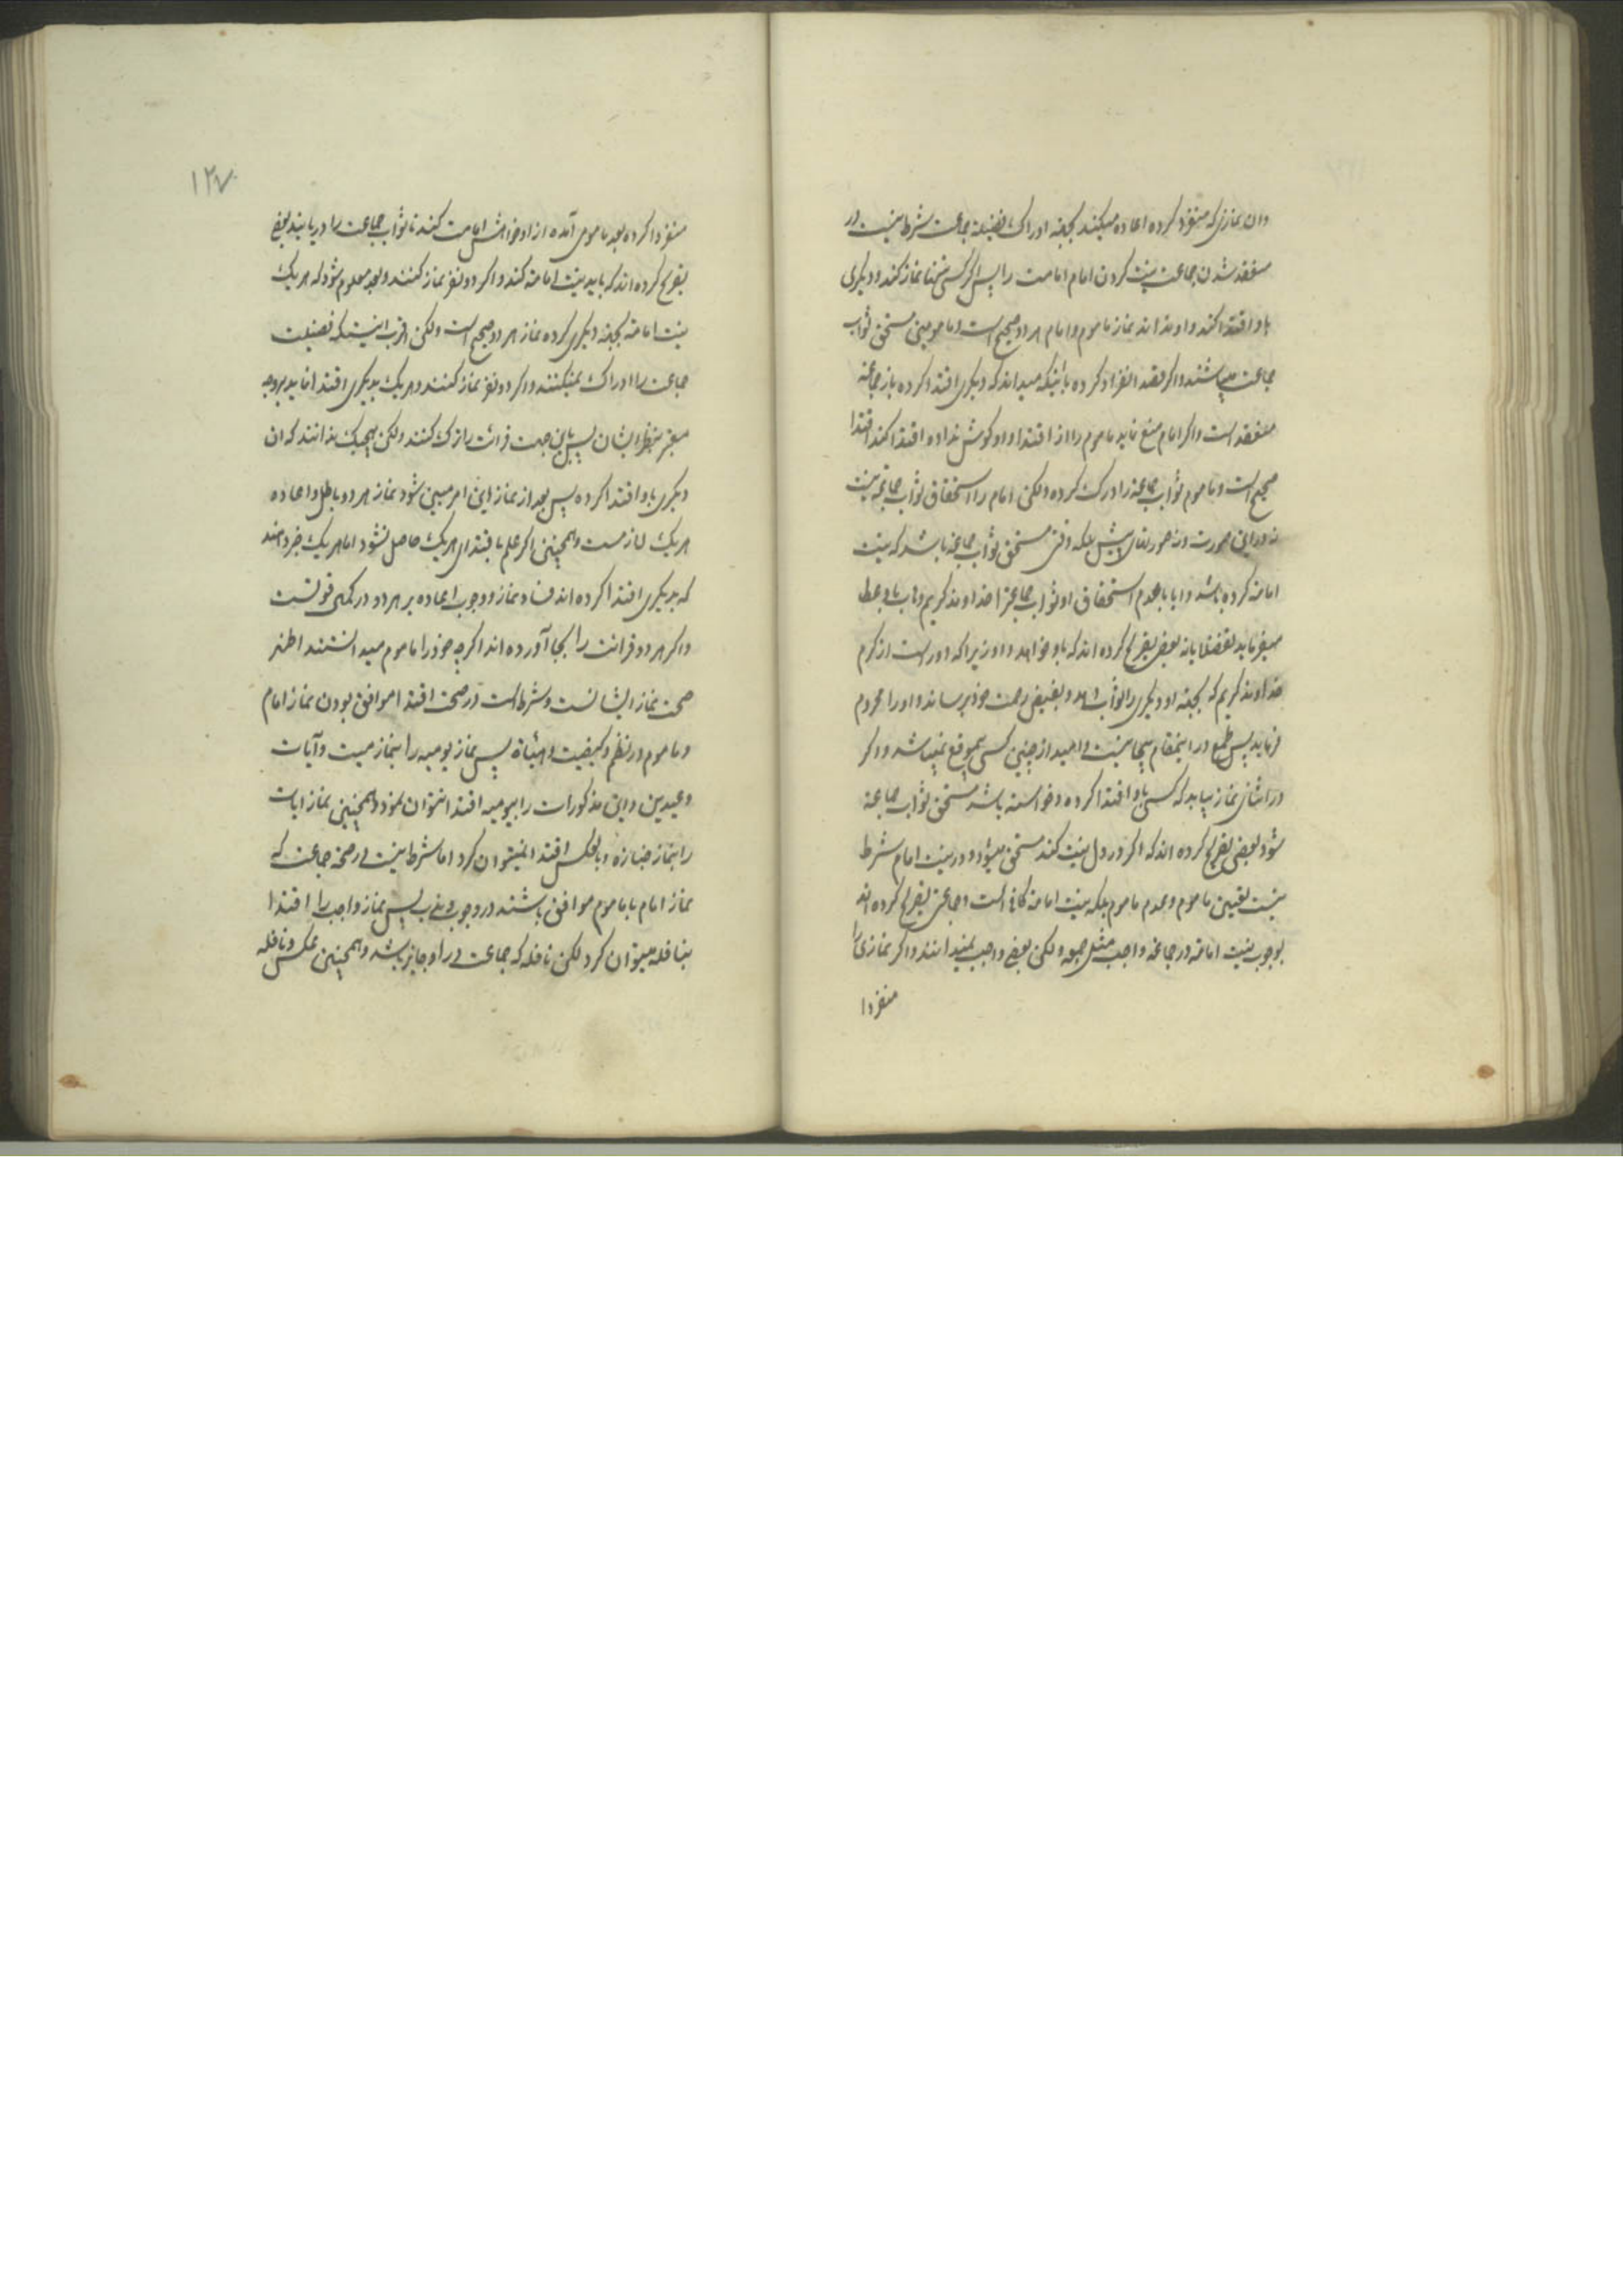 وان نمازی که منفرد کرده اعاده میکند بجهة ادراک فضیلة جماعت شرط نیست در
منعقد شدن جماعت نیت کردن امام امامت را پس اگر کسی تنها نماز کند و دیکری
باو اقتدا کند و او نداند نماز ماموم و امام هر دو صحیح است و مامومین مستحق ثواب
جماعت میباشند و اکر قصد انفراد کرده با اینکه میداند که دیکری اقتدا کرده باز جماعة
منعقد است و اکر امام منع نماید ماموم را از اقتدا و او کوش نداده اقتدا کند اقتدا
صحیح است و ماموم ثواب جماعة را درک کرده ولکن امام را استحقاق ثواب جماعة نیست
نه در این صورت و نه صورتهای پیش بلکه وقتی مستحق ثواب جماعة باشد که نیت
امامة کرده باشد و ایا با عدم استحقاق او ثواب جماعة را خداوند کریم وهاب باو عطا
میفرماید تفضلا یا نه بعضی تصریح کرده اند که باو خواهد داد زیرا که دور است از کرم
خداوند کریم که بجهة او دیکری را ثواب دهد و بفیض رحمت خود برساند و او را محروم
فرماید پس طمع در اینمقام بیجا نیست و امید از چنین کسی بموقع نمیباشد و اکر
در اثنای نماز بیابد که کسی باو اقتدا کرده و خواسته باشد مستحق ثواب جماعة
شود بعضی تصریح کرده اند که اکر در دل نیت کند مستحق میشود و در نیت امام شرط
نیست تعیین ماموم و عدم ماموم بلکه نیت امامة کافی است و جماعتی تصریح کرده اند
بوجوب نیت امامة در جماعة واجب مثل جمعه ولکن بعضی واجب نمیدانند و اکر نمازی را
منفردا
۱۲۷
منفردا کرده بعد مامومی آمده از او خواهش امامت کند تا ثواب جماعت را دریابند بعضی
تصریح کرده اند که باید نیت امامة کند و اکر دو نفر نماز کنند و بعد معلوم شود که هر یک
نیت امامة بجهة دیکری کرده نماز هر دو صحیح است ولکن اقرب اینست که فضیلت
جماعت را ادراک نمیکنند و اکر دو نفر نماز کنند و هر یک بدیکری اقتدا نماید بر وجه
معتبر بنظر ایشان پس باین جهت قرائت را ترک کنند ولکن هیچیک ندانند که ان
دیکری باو اقتدا کرده پس بعد از نماز این امر مبین شود نماز هر دو باطل و اعاده
هر یک لازمست و همچنین اکر علم باقتدای هر یک حاصل نشود اما هر یک خبر دهند
که بدیکری اقتدا کرده اند فساد نماز و وجوب اعاده بر هر دو در کمال قوتست
و اکر هر دو قرائت را بجا آورده اند اکر چه خود را ماموم میدانستند اظهر
صحت نماز ایشانست و شرط است در صحت اقتدا موافق بودن نماز امام
و ماموم در نظم و کیفیت و هیئاة پس نماز یومیه را بنماز میت و آیات
و عیدین و این مذکورات را بیومیه اقتدا نتوان نمود و همچنین نماز ایات
را بنماز جنازه و بالعکس اقتدا نمیتوان کرد اما شرط نیست در صحة جماعت که
نماز امام با ماموم موافق باشند در وجوب و ندب پس نماز واجب را اقتدا
بنافله میتوان کرد لکن نافله که جماعت در او جایز باشد و همچنین عکس و نافله